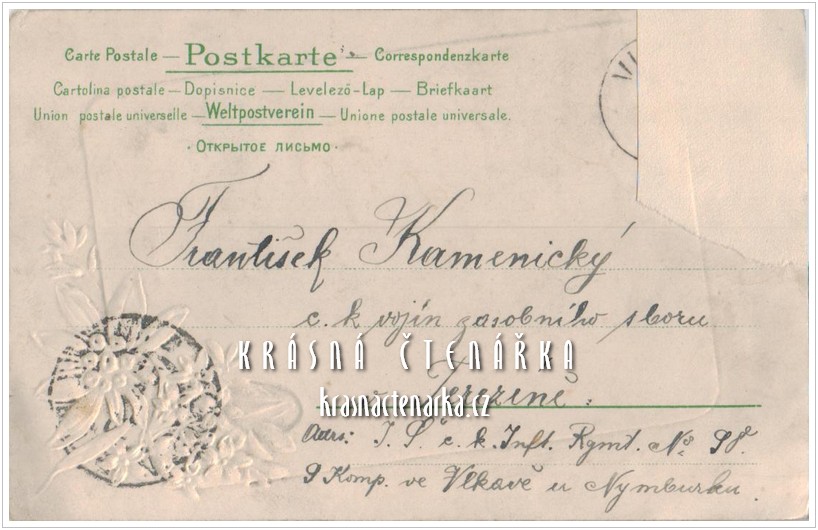 Carte Postale — Postkarte — Correspondenzkarte
Cartolina postale — Dopisnice — Levelező-Lap — Briefkaart
Union postale universelle — Weltpostverein — Unione postale universale.
· Открытое письмо ·
František Kamenický
c. k vojín zasobního sboru
KRÁSNÁ ČTENÁŘKA
v Jerezené:
krasnactenarka.cz
Adrs: I. S. c. k. Inft. Rgmt. No. 98.
9 Komp. ve Vlkavě u Nymburku.